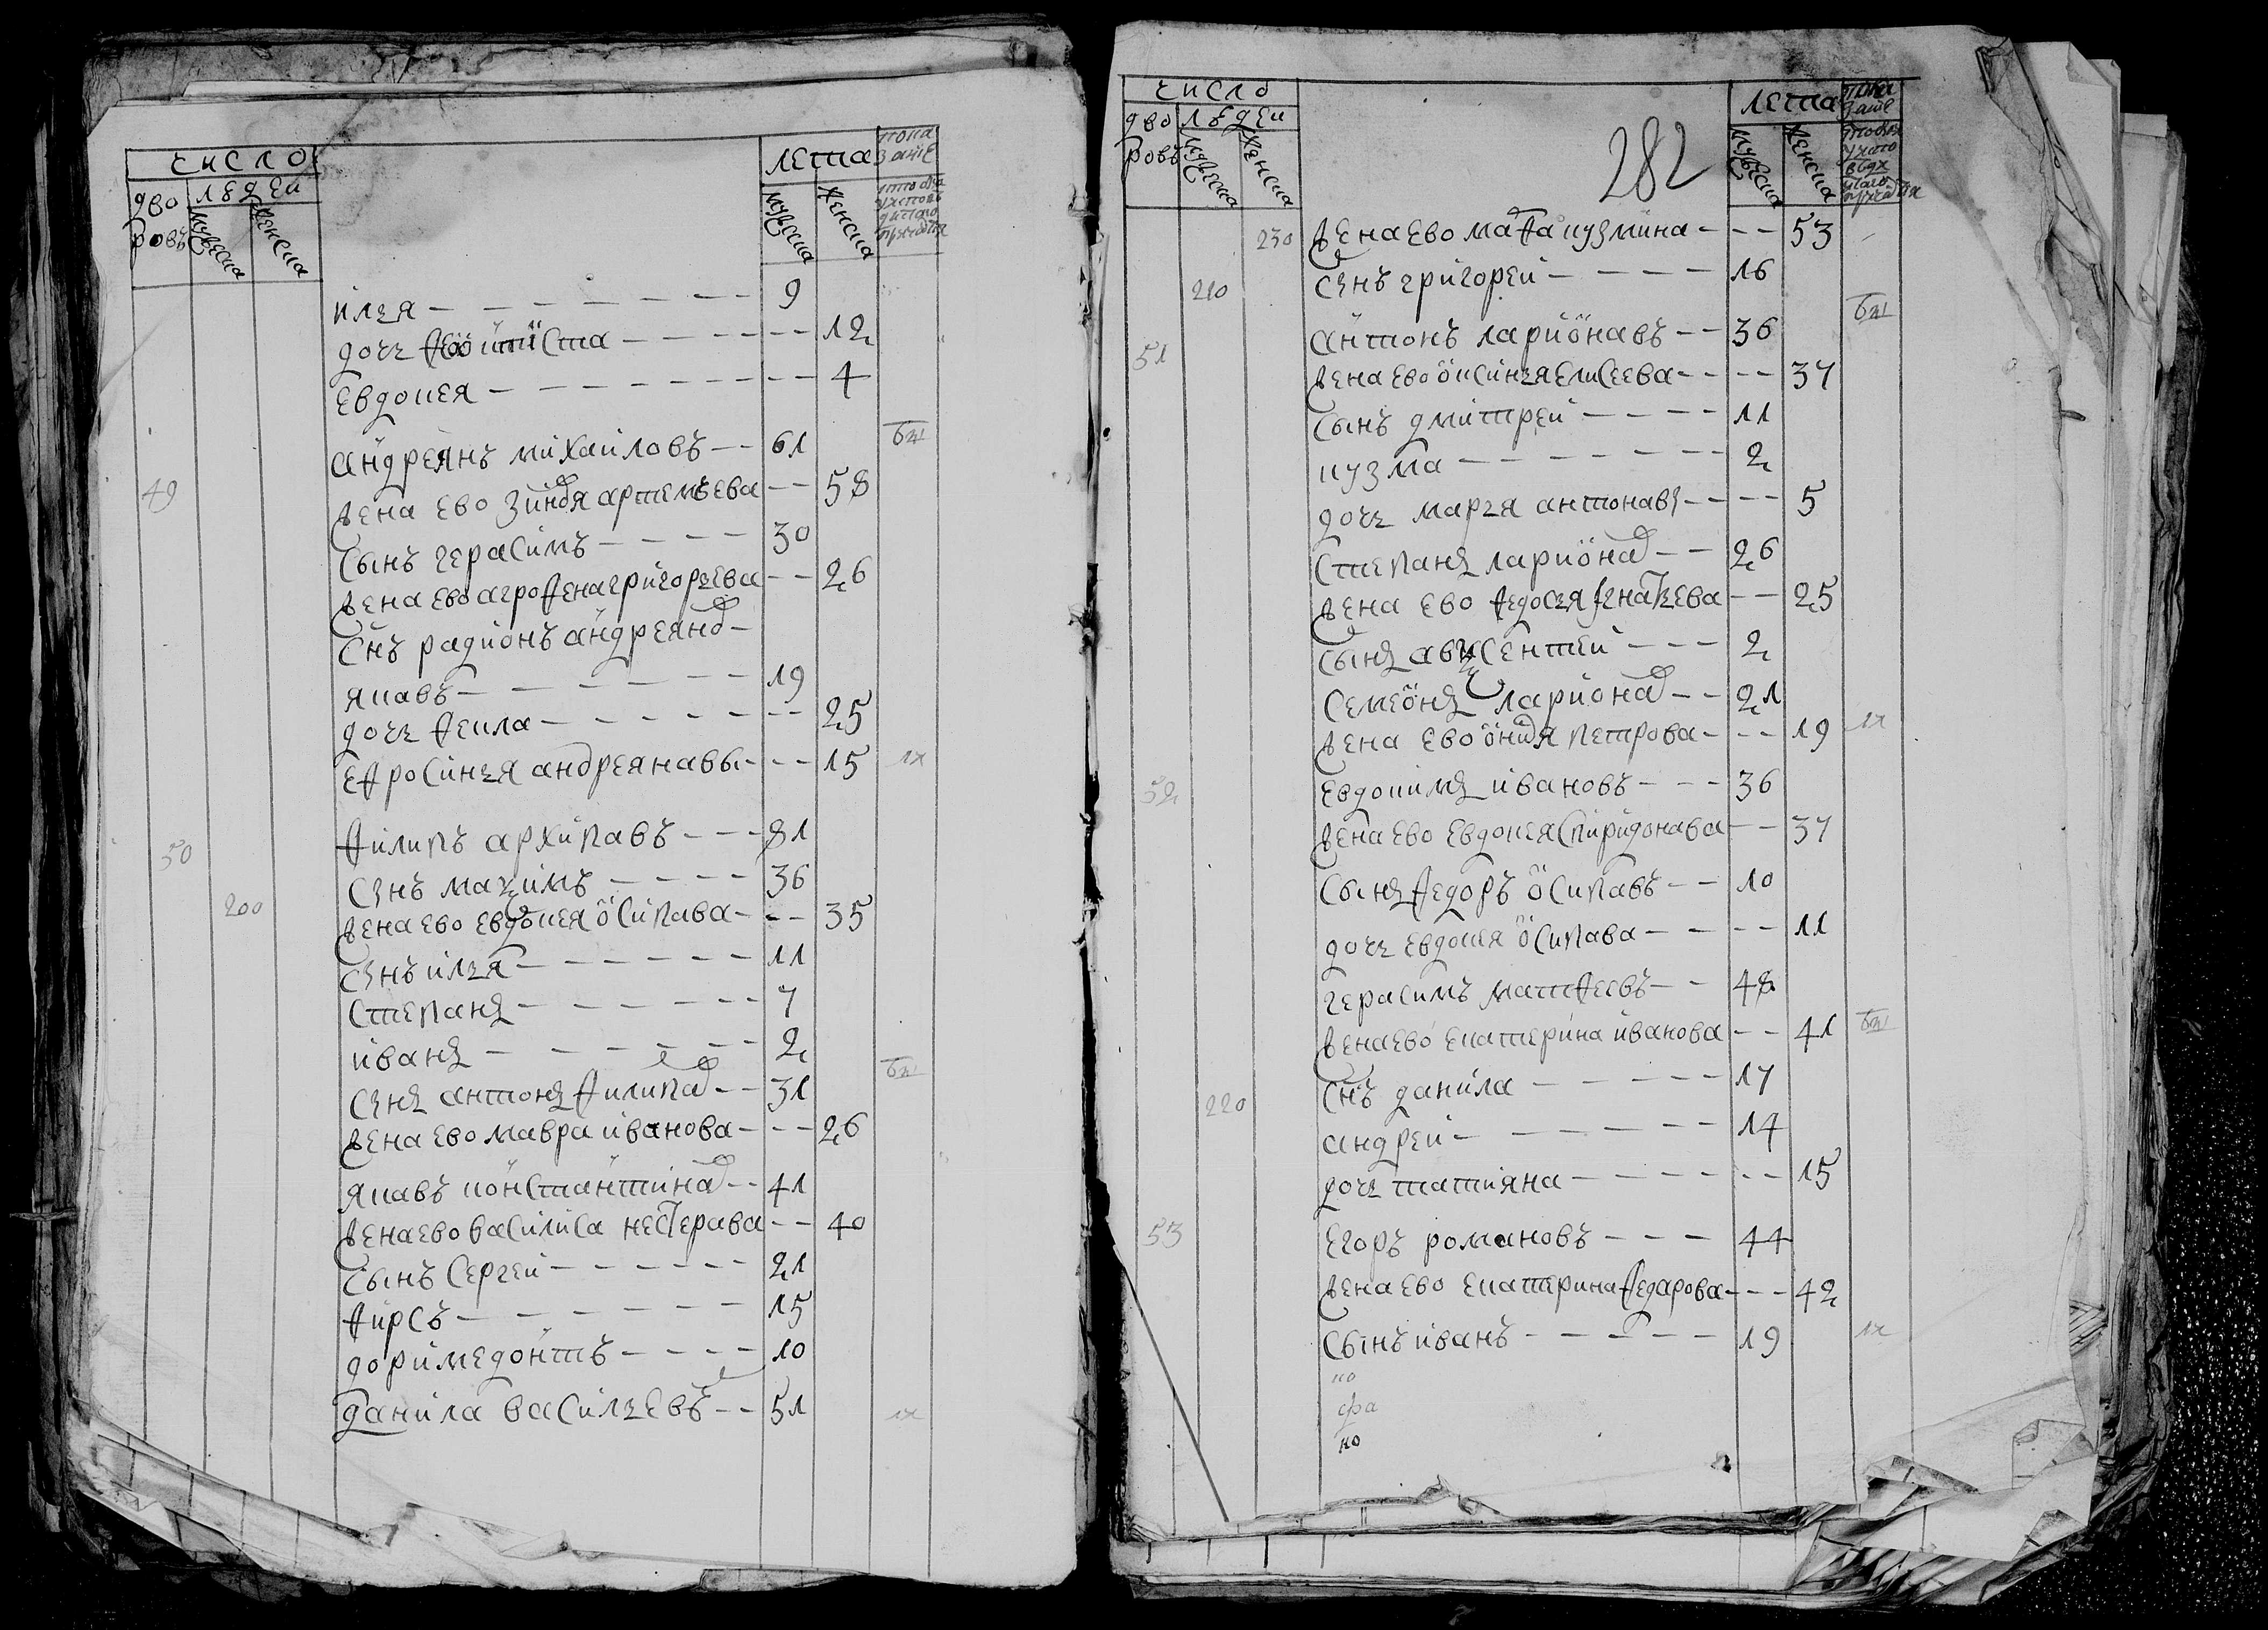 число
дво
ровъ
людеи
мужеска
женска
лета
мужеска
женска
пока
заніе
илья - - - - - - - 9
дочь - - - - - - - 12
Евдокея - - - - - - - - - 4
андреянъ михаиловъ - - 61
49 жена ево артемьева - - 58
сынъ герасимъ - - - - 30
жена ево агрофена григорьева - - 26
снъ радионъ андреянов -
яковъ - - - - - - 19
дочь фекла - - - - - - - 25
ефросинья андреянавы - - - 15
50 филипъ архипавъ - - - 81
сынъ максимъ - - - - 36
200 жена ево евдокея осипава - - - 35
сынъ илья - - - - - - 11
степанъ - - - - - - 7
иванъ - - - - - - 2
сынъ антонъ филипов - - 31
жена ево мавра иванова - - - 26
яковъ константинов - - 41
жена ево василиса нестерава - - 40
сынъ сергеи - - - - - - 21
фирсъ - - - - - - 15
доримедонтъ - - - - 10
данила васильевъ - - 51
282
число
дво
ровъ
людеи
мужеска
женска
лета
мужеска
женска
пока
заніе
230 жена ево кузмина - - - 53
210 сынъ григореи - - - - 16
51 антонъ ларионавъ - - 36
жена ево оксинья елисеева - - - - 37
сынъ дмитреи - - - - 11
кузма - - - - - - - 2
дочь марья антонавы - - - - 5
степанъ ларионов - - 26
жена ево федосья игнатьева - - 25
сынъ авксентеи - - - 2
семеонъ ларионов - - 21
жена ево петрова - - - 19
52 евдокимъ ивановъ - - - 36
жена ево евдокея спиридонава - - 37
сынъ федоръ осипавъ - - 10
дочь евдокея осипава - - - - 11
герасимъ матфеевъ - - 48
жена ево екатерина иванова - - 41
снъ данила - - - - - 17
220 андреи - - - - - - 14
дочь татияна - - - - - - 15
53 егоръ романовъ - - - 44
жена ево екатерина федарова - - - 42
сынъ иванъ - - - - - 19
но
фа
но